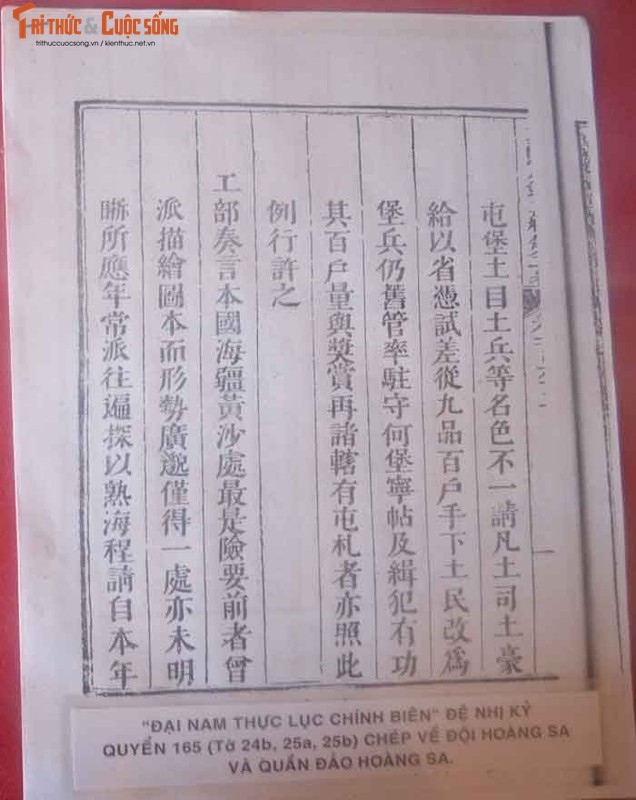 TRI THỨC & CUỘC SỐNG
trithuccuocsong.vn / kienthuc.net.vn
屯堡土目土兵等名色不一請凡土司土豪
給以省憑試差從九品百戶手下土民改爲
堡兵仍舊管率駐守何堡寧帖及緝犯有功
其百戶量與奬賞再諸轄有屯札者亦照此
例行許之
工部奏言本國海疆黃沙處最是險要前者曾
派描繪圖本而形勢廣邈僅得一處亦未明
晰所應年常派往遍探以熟海程請自本年
"ĐẠI NAM THỰC LỤC CHÍNH BIÊN" ĐỆ NHỊ KỶ
QUYỂN 165 (Tờ 24b, 25a, 25b) CHÉP VỀ ĐỘI HOÀNG SA
VÀ QUẦN ĐẢO HOÀNG SA.